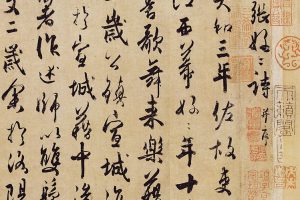 張好〻詩 并序
大和三年佐故吏
江西幕好〻年十
善歌舞來樂籍
歲公鎮宣城
於宣城籍中後
著作述師以雙鬟
又二歲余於洛陽